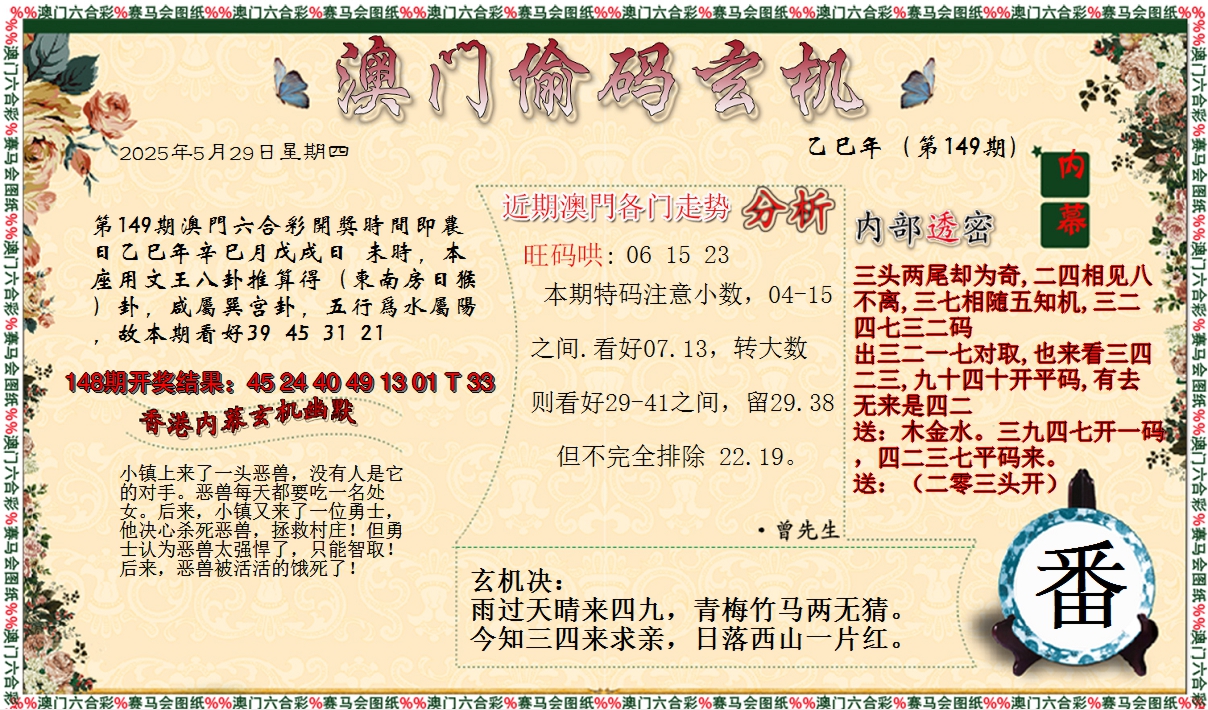 %%澳门六合彩%赛马会图纸%%澳门六合彩%赛马会图纸%%澳门六合彩%赛马会图纸%%澳门六合彩%赛马会图纸%%澳门六合彩%赛马会图纸%%澳门六合彩%赛马会图纸%%
澳门偷码玄机
2025年5月29日星期四
乙巳年（第149期）
内
幕
第149期澳門六合彩開獎時間即農
日乙巳年辛巳月戊戌日 未時，本
座用文王八卦推算得（東南房日猴
）卦，咸屬巽宫卦，五行爲水屬陽
，故本期看好39 45 31 21
148期开奖结果：45 24 40 49 13 01 T 33
香港内幕玄机幽默
小镇上来了一头恶兽，没有人是它
的对手。恶兽每天都要吃一名处
女。后来，小镇又来了一位勇士，
他决心杀死恶兽，拯救村庄！但勇
士认为恶兽太强悍了，只能智取！
后来，恶兽被活活的饿死了！
近期澳門各门走势 分析
旺码哄: 06 15 23
本期特码注意小数，04-15
之间.看好07.13，转大数
则看好29-41之间，留29.38
但不完全排除 22.19。
·曾先生
内部透密
三头两尾却为奇,二四相见八
不离,三七相随五知机,三二
四七三二码
出三二一七对取,也来看三四
二三,九十四十开平码,有去
无来是四二
送：木金水。三九四七开一码
，四二三七平码来。
送：（二零三头开）
玄机决：
雨过天晴来四九，青梅竹马两无猜。
今知三四来求亲，日落西山一片红。
番
%%澳门六合彩%赛马会图纸%%澳门六合彩%赛马会图纸%%澳门六合彩%赛马会图纸%%澳门六合彩%赛马会图纸%%澳门六合彩%赛马会图纸%%澳门六合彩%赛马会图纸%%